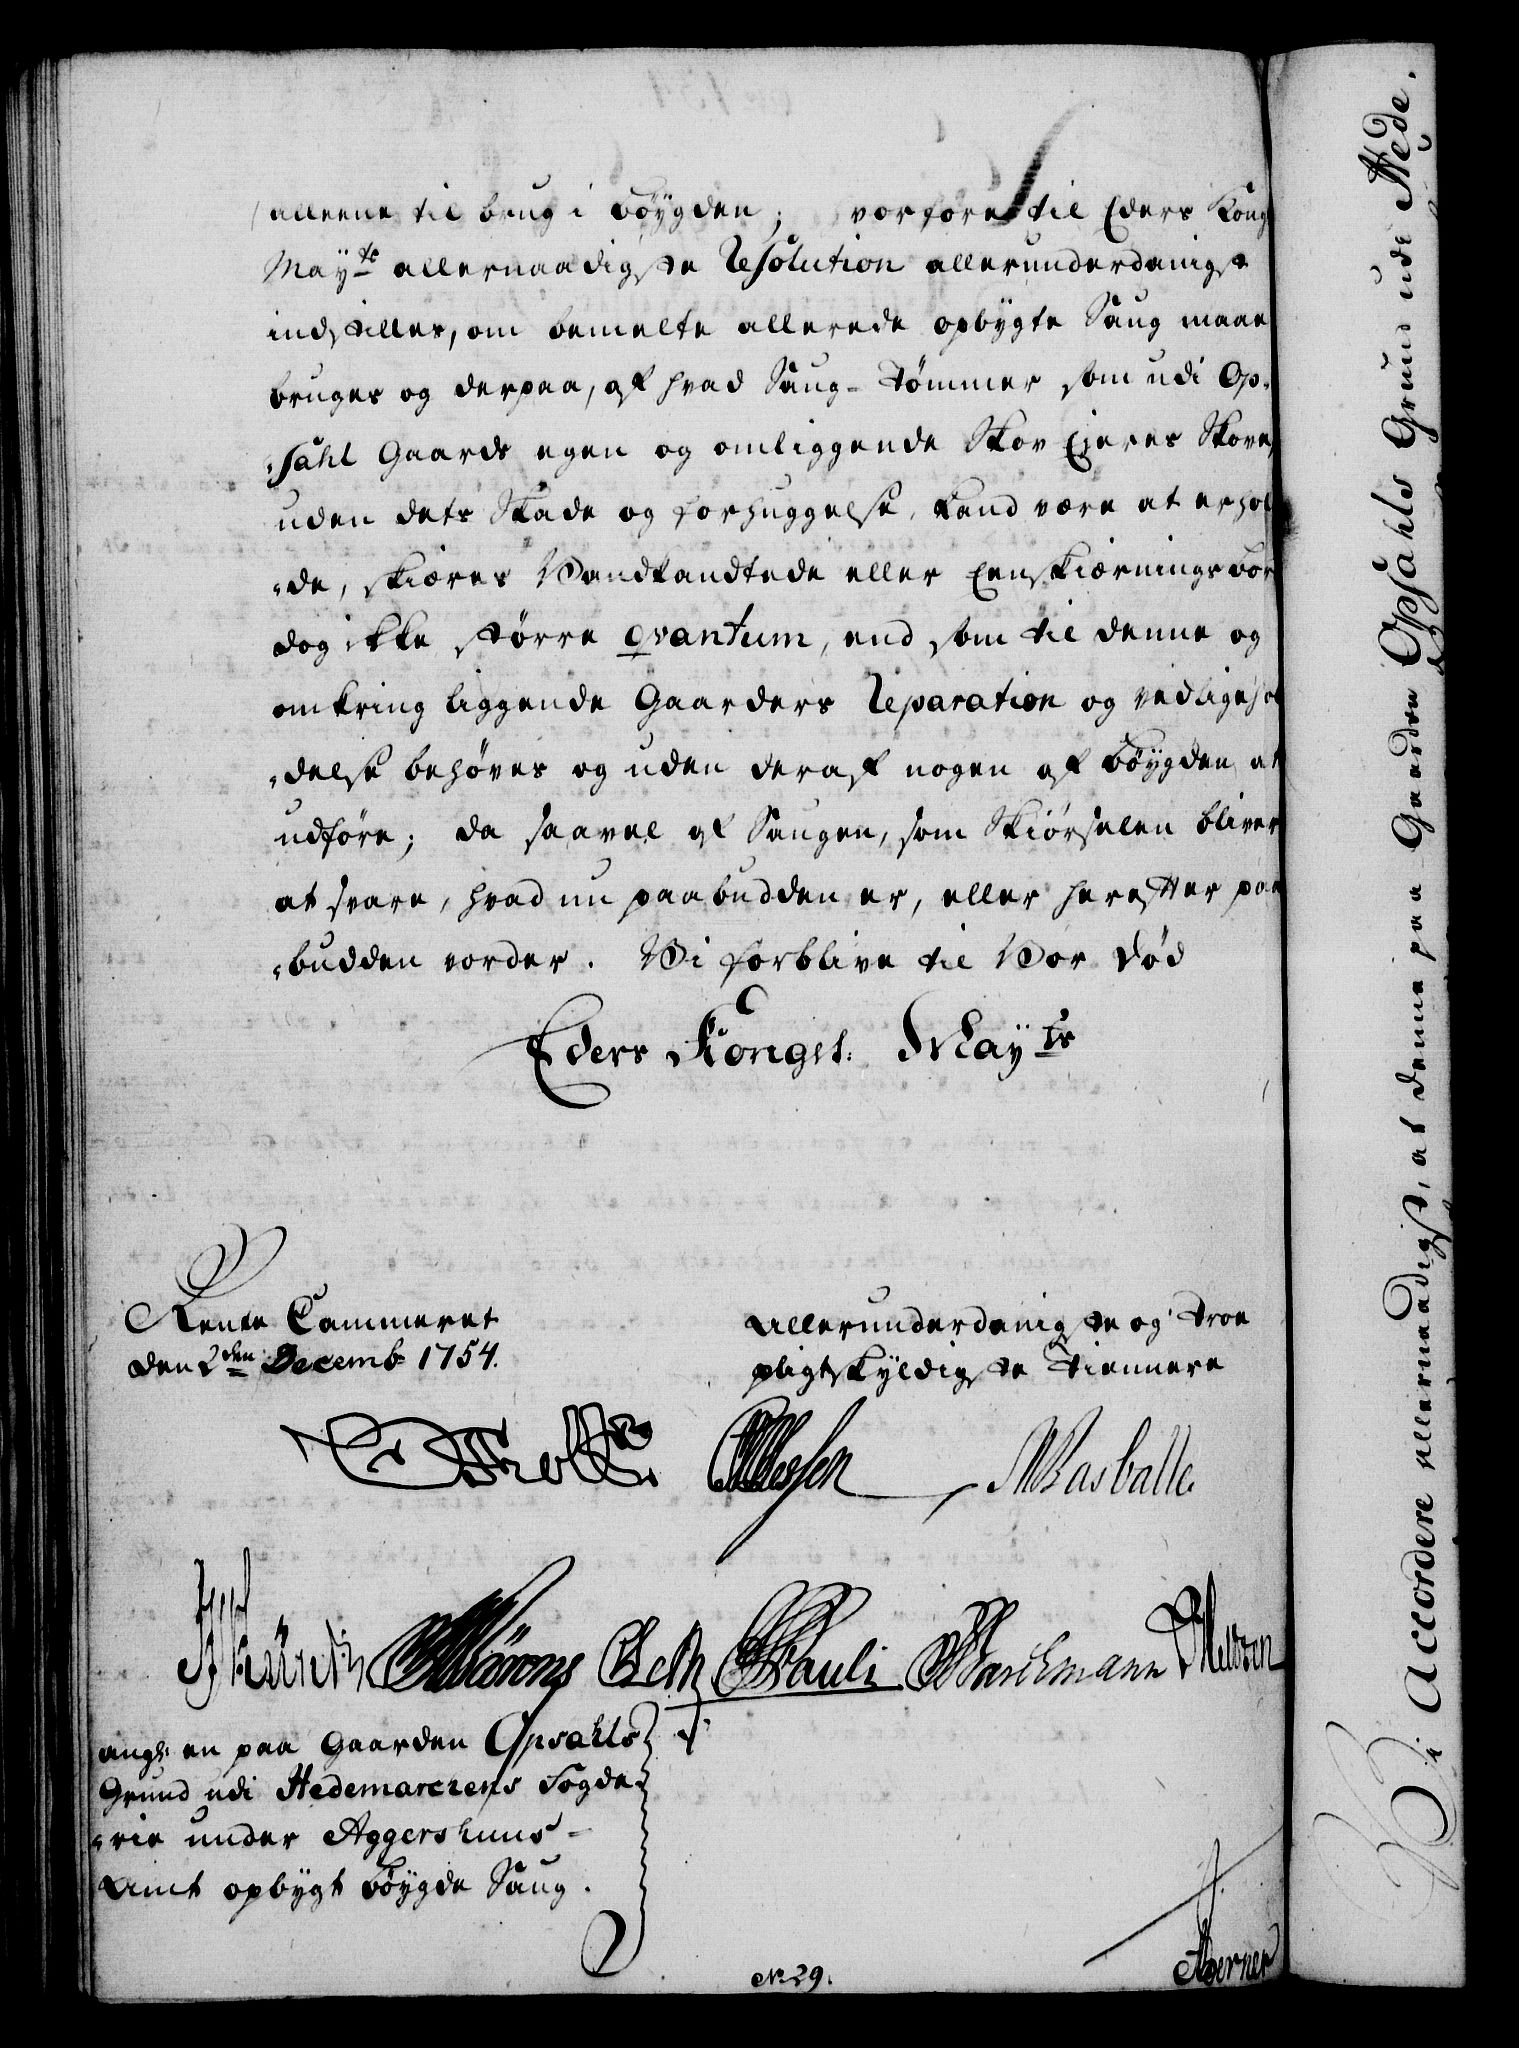 alleene til brug i böygden; vorfore til Eders Kong
May<sup>ts</sup> allernaadigste Resolution allerunderdanigst
indstilles, om bemelte allerede opbygte Saug maae
bruges og derpaa, af hvad Saug-Tömmer som udi Op-
-sahl Gaards egen og omliggende Skov Ejeres Skove,
uden dets Skade og forhuggelse, kand være at erhol
-de, skiæres Vandkandtede eller Eenskiærnings bor
dog ikke större qvantum, end som til denne og
omkring liggende Gaarders Reparation og vedligehol
-delse behöves og uden deraf nogen af böygden at
udföre; da saavel af Saugen, som Skiörselen bliver
at svare, hvad nu paabudden er, eller herefter paa
-budden vorder. Vi forblive til Vor Död
Eders Kongel. May<sup>ts</sup>
Rente Cammeret
den 2<sup>den</sup> Decemb. 1754.
allerunderdanigste og Troe
pligtskyldigste Tiennere
Masballe
Pauli
ang: en paa Gaarden Opsahls
Grund udi Hedemarckens Fogde-
-rie under Aggershuus-
Amt opbygt böygde Saug.
No 29.
Vi Accordere allernaadigst, at denne paa Gaarden Opsahls Grund udi Nede.